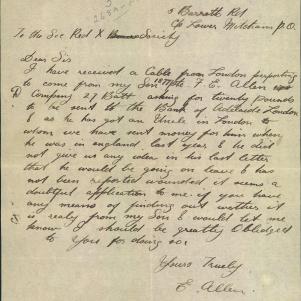 5 Barrett Rd
Lower Mitcham P.O.
To the Sec Red X Society
Dear Sir
I have received a Cable from London purporting
to come from my Son Pte F. E. Allen
D Company 27 Batt asking for twenty pounds
to be sent to the Bank of Adelaide London
& as he has got an Uncle in London to
whom we have sent money for him when
he was in england last year & he did
not give us any idea in his last letter
that he would be going on leave & has
not been reported wounded it seems a
doubtful application to me. if you have
any means of finding out wether it
is realy from my Son & would let me
know I should be greatly Obbledged
to You for doing so.
Yours Truely
E. Allen